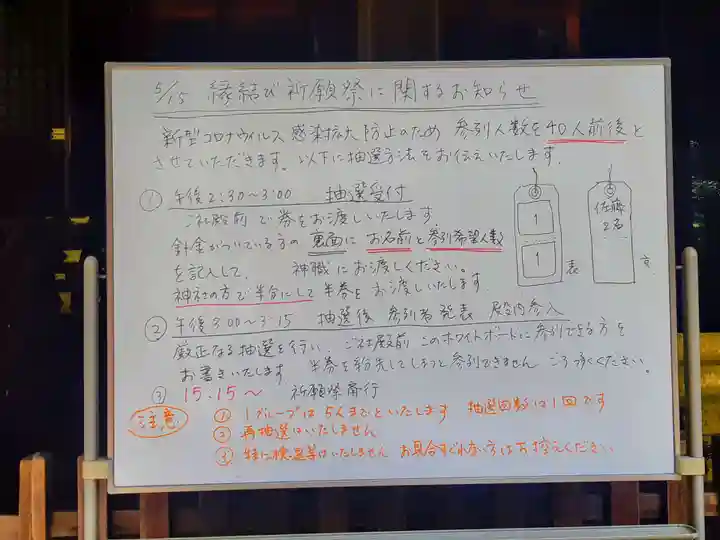 5/15 縁結び祈願祭に関するお知らせ
新型コロナウィルス感染拡大防止のため 参列人数を40人前後と
させていただきます。以下に抽選方法をお伝えいたします.
① 午後2:30〜3:00 抽選受付
ご社殿前で券をお渡しいたします
針金がついている方の裏面にお名前と参列希望人数
を記入して、 神職にお渡しください。
神社の方で半分にして半券をお渡しいたします
1
1
表
佐藤
2名
② 午後3:00〜3:15 抽選後 参列者発表 殿内参入
厳正なる抽選を行い、ご社殿前このホワイトボードに参列できる方を
お書きいたします 半券を紛失してしまうと参列できません ご了承ください。
③ 15.15〜 祈願祭斎行
注意
① 1グループは5人までといたします 抽選回数は1回です
② 再抽選はいたしません
③ 特に検温等はいたしません お具合すぐれない方はお控えください